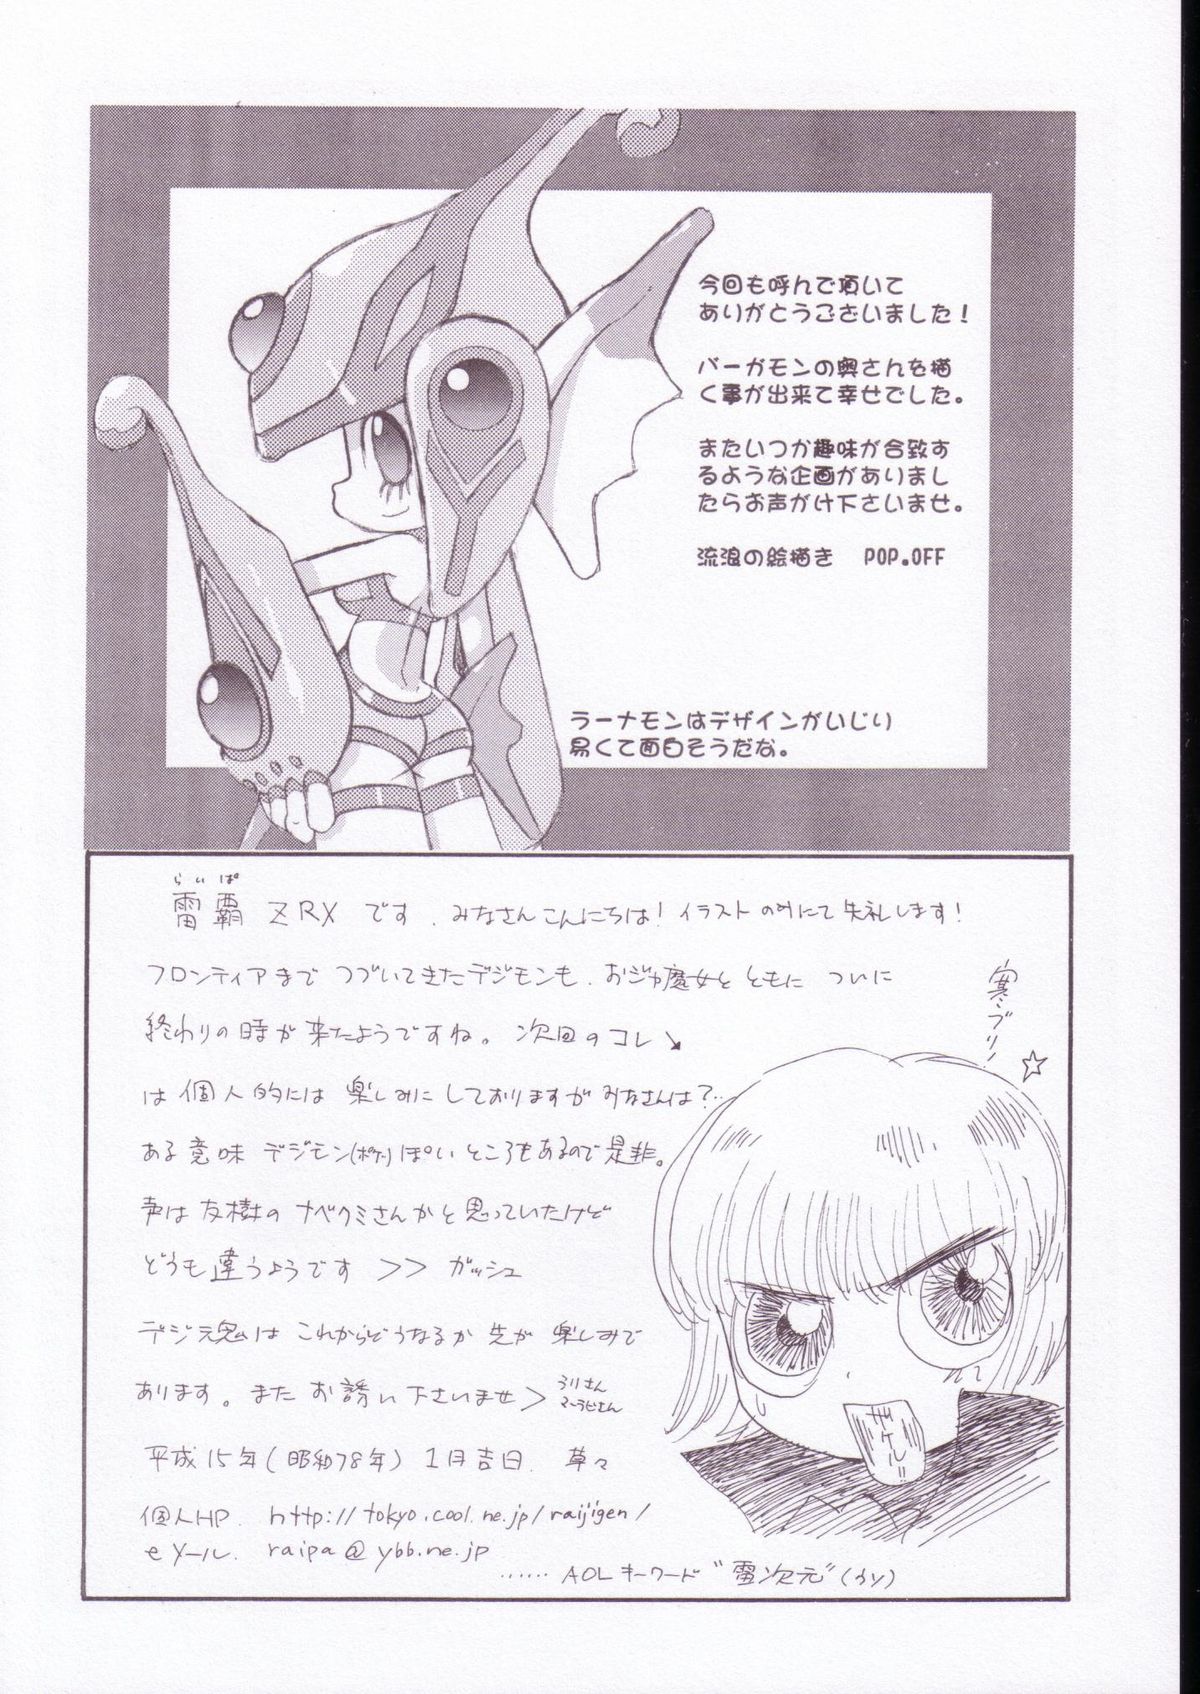 今回も呼んで頂いて
ありがとうございました！
バーガモンの奥さんを描
く事が出来て幸せでした。
またいつか趣味が合致す
るような企画がありまし
たらお声がけ下さいませ。
流浪の絵描き　POP.OFF
ラーナモンはデザインがいじり
易くて面白そうだな。
らいぱ
雷覇 ZRX です. みなさんこんにちは! イラストのみにて失礼します!
フロンティアまで つづいてきたデジモンも、おジャ魔女と ともに ついに
終わりの時が来たようですね。次回のコレ↘
は個人的には 楽しみにしておりますが みなさんは?…
ある意味 デジモン(ポケ)ぽいところもあるので是非。
声は友樹のナベクミさんかと思っていたけど
どうも違うようです >> ガッシュ
デジ魂は これからどうなるか 先が 楽しみで
あります。またお誘い下さいませ >
うりさん
マーラビさん
平成15年(昭和78年) 1月吉日. 草々
個人HP. http://tokyo.cool.ne.jp/raijigen/
eメール. raipa@ybb.ne.jp
……AOLキーワード"雷次元"(うソ)
寒ブリ!
ザケル!!